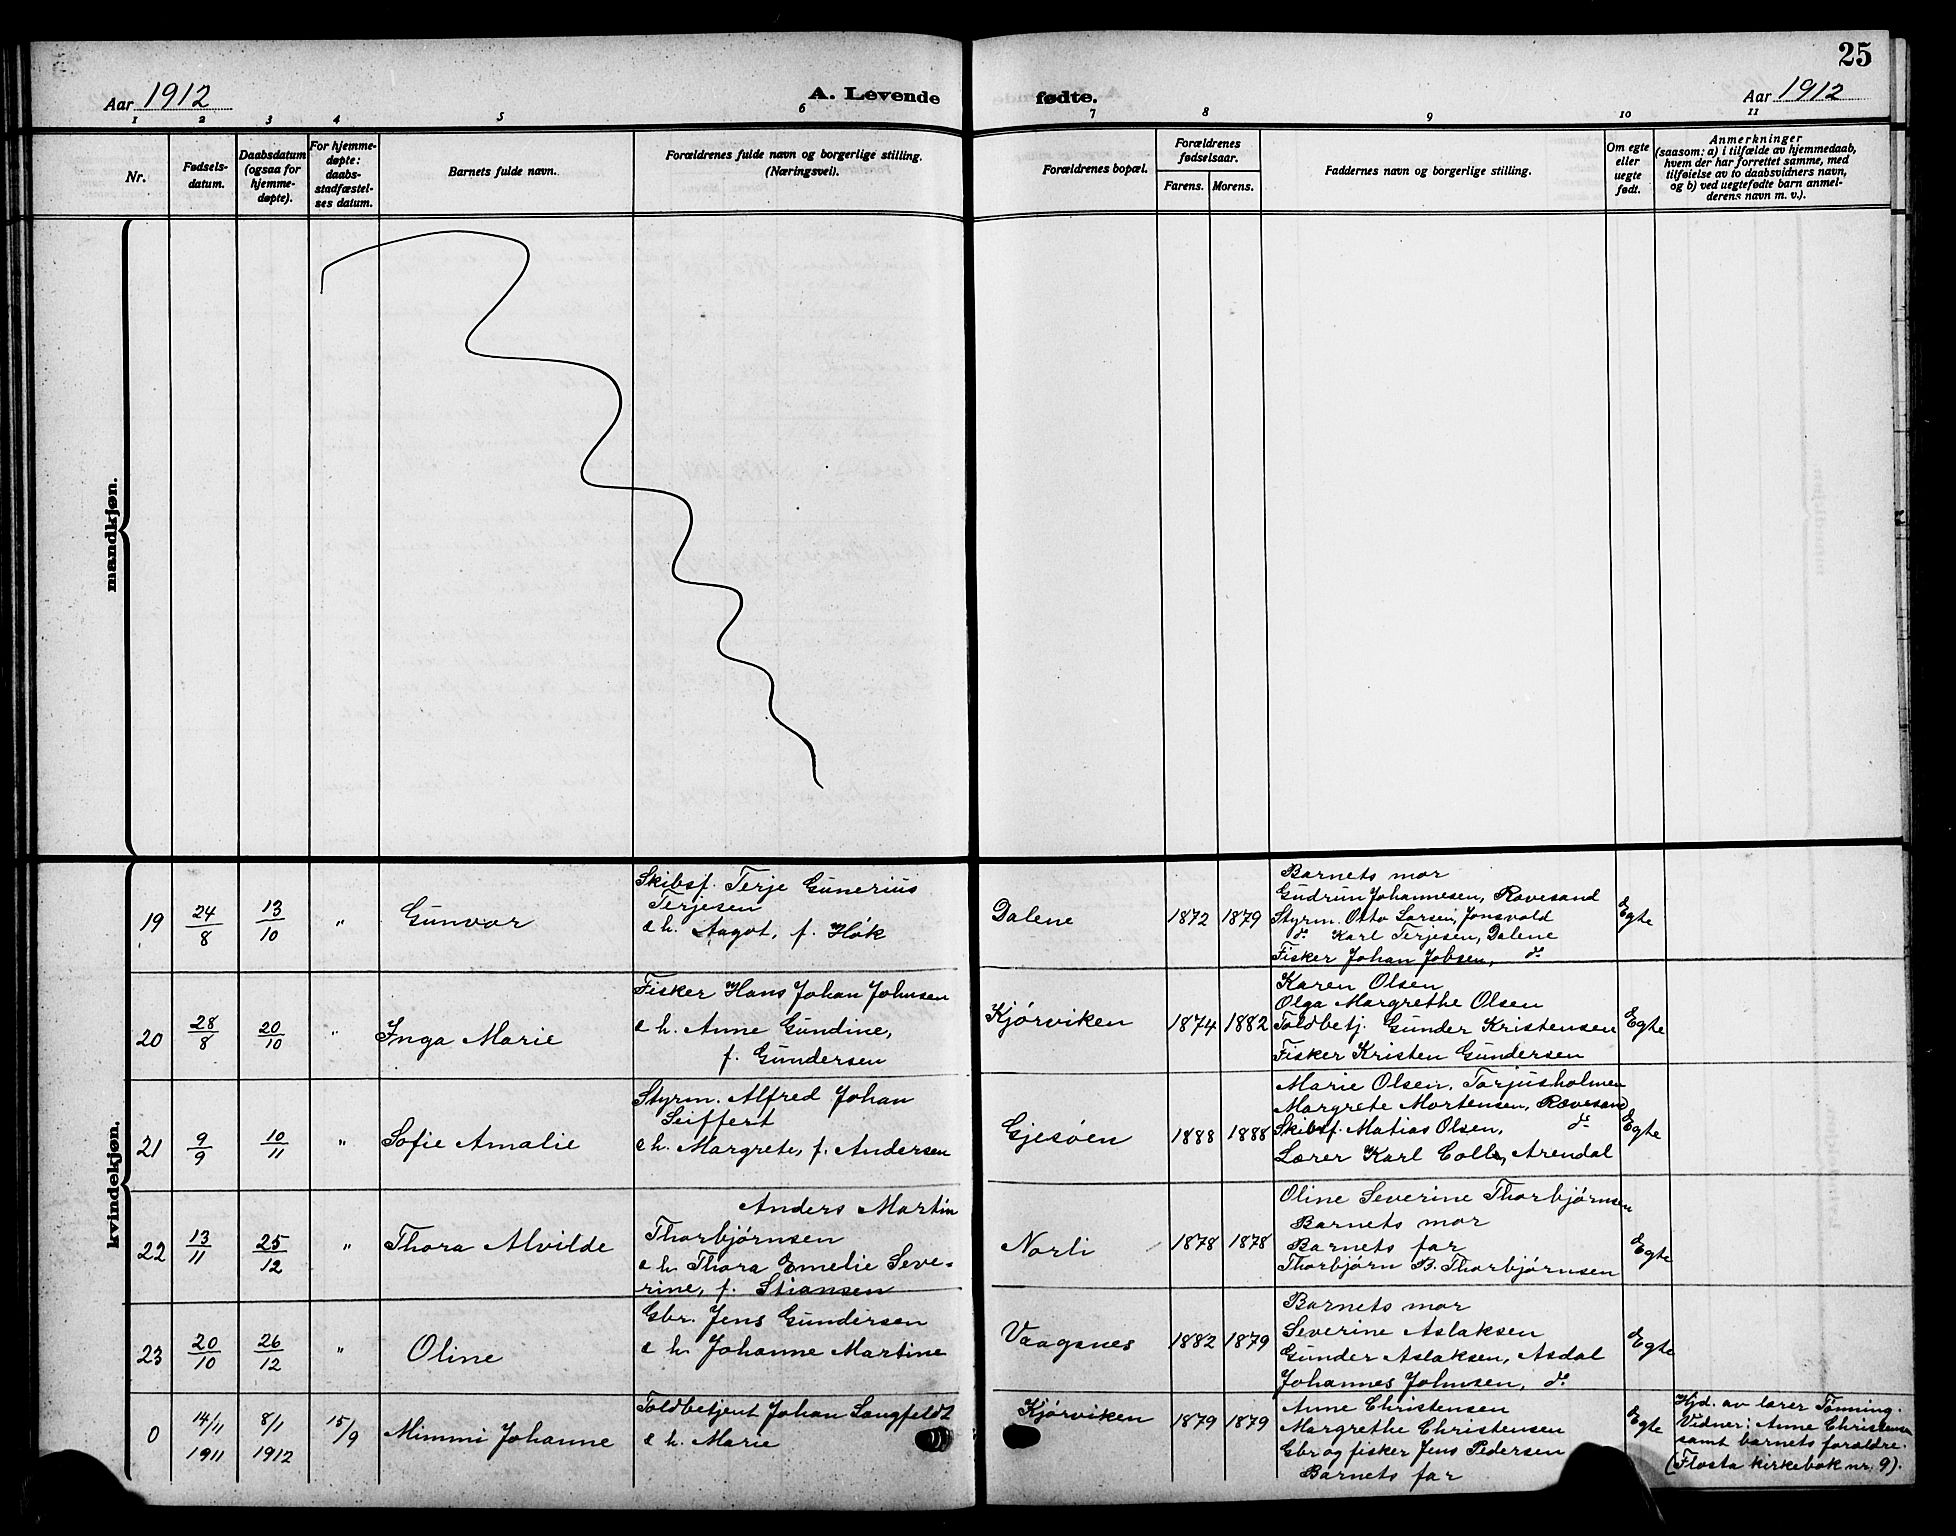 25
Aar 1912
A. Levende
fødte.
Aar 1912
1 2 3 4 5 6 7 8 9 10 11
Nr.
Fødsels-
datum.
Daabsdatum
(ogsaa for
hjemme-
døpte).
For hjemme-
døpte:
daabs-
stadfæstel-
ses datum.
Barnets fulde navn.
Forældrenes fulde navn og borgerlige stilling.
(Næringsvei).
Forældrenes bopæl.
Forældrenes
fødselsaar.
Farens. Morens.
Faddernes navn og borgerlige stilling.
Om egte
eller
uegte
født.
Anmerkninger
(saasom: a) i tilfælde av hjemmedaab,
hvem der har forrettet samme, med
tilføielse av to daabsvidners navn,
og b) ved uegtefødte barn anmel-
derens navn m. v.).
mandkjøn.
kvindekjøn.
19 24/8 13/10 " Gunvor
Skibsf. Terje Gunerius
Terjesen
e h. Aagot, f. Høk
Dalene 1872 1879
Barnets mor
Gudrun Johannesen, Rævesand
Styrm. Otto Larsen, Jonsvold
do Karl Terjesen, Dalene
Fisker Johan Jobsen, do
Egte
20 28/8 20/10 " Inga Marie
Fisker Hans Johan Johnsen
e h. Anne Gundine,
f. Gundersen
Kjørviken 1874 1882
Karen Olsen
Olga Margrethe Olsen
Toldbetj. Gunder Kristensen
Fisker Kristen Gundersen
Egte
21 9/9 10/11 " Sofie Amalie
Styrm. Alfred Johan
Seiffert
e h. Margrete, f. Andersen
Gjesøen 1888 1888
Marie Olsen, Torjusholmen
Margrete Mortensen, Rævesand
Skibsf. Matias Olsen, do
Lærer Karl Colle, Arendal
Egte
22 13/11 25/12 " Thora Alvilde
Anders Martin
Thorbjørnsen
e h. Thora Emelie Seve-
rine, f. Stiansen
Norli 1878 1878
Oline Severine Thorbjørnsen
Barnets mor
Barnets far
Thorbjørn B. Thorbjørnsen
Egte
23 20/10 26/12 " Oline
Gbr. Jens Gundersen
e h. Johanne Martine
Vaagsnes 1882 1879
Barnets mor
Severine Aslaksen
Gunder Aslaksen, Asdal
Johannes Johnsen, do
Egte
0 14/11 1911 8/1 1912 15/9 Mimmi Johanne
Toldbetjent Johan Langfeldt
e h. Marie
Kjørviken 1879 1879
Anne Christensen
Margrethe Christensen
Gbr og fisker Jens Pedersen
Barnets far
Egte
Hjd. av lærer Tønning.
Vidner: Anne Christensen
samt barnets forældre.
(Flosta kirkebok nr. 9).